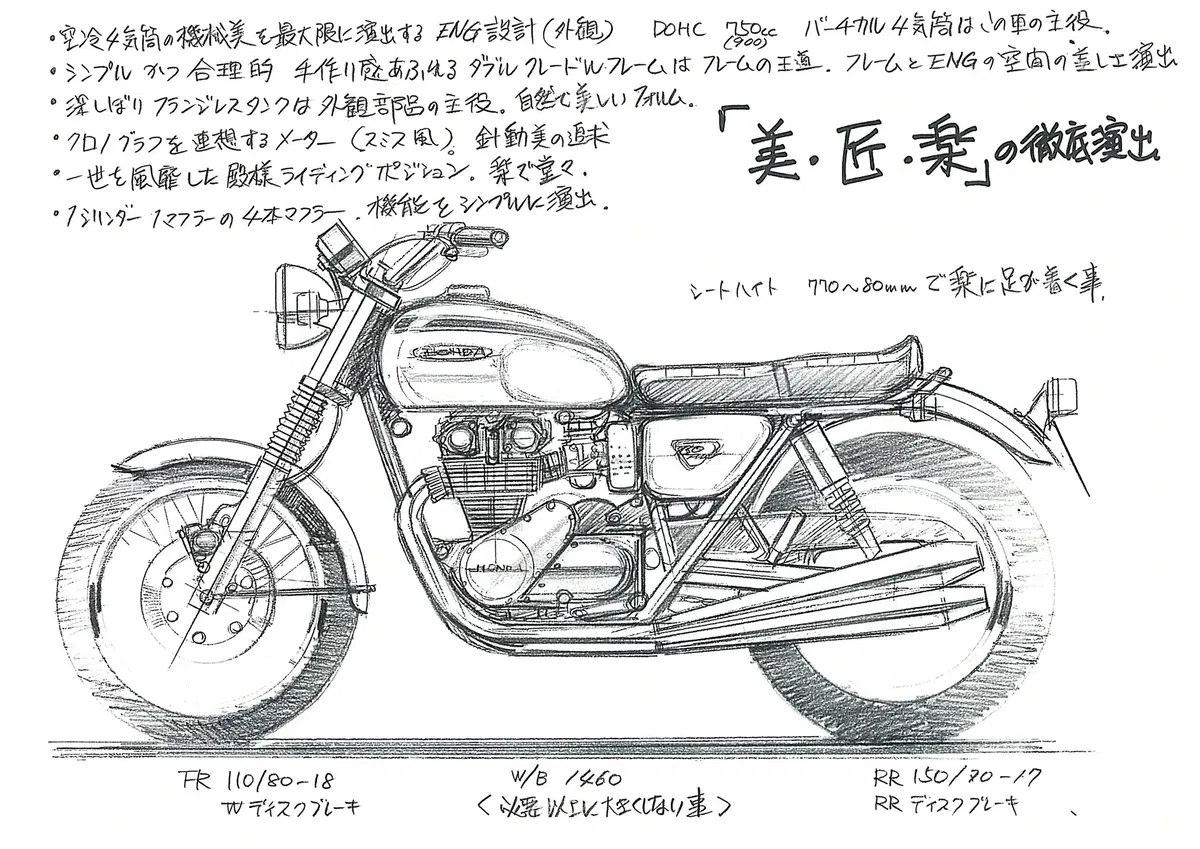 ・空冷4気筒の機械美を最大限に演出する ENG設計(外観) DOHC 750cc (900) バーチカル4気筒はこの車の主役。
・シンプル かつ 合理的 手作り感あふれる ダブルクレードルWフレームは フレームの王道. フレームとENGの空間の美しさ演出
・深しぼり フランジレスタンクは 外観部品の主役。自然で美しいフォルム。
・クロノグラフを連想するメーター(スミス風)。針動美の追求
・一世を風靡した殿様ライディングポジション。楽で堂々.
・1シリンダー1マフラーの4本マフラー. 機能をシンプルに演出.
「美・匠・楽」の徹底演出
シートハイト 770〜80mmで楽に足が着く事.
HONDA
HONDA
FR 110/80-18
Wディスクブレーキ
W/B 1460
〈必要以上に大きくしない事〉
RR 150/70-17
RR ディスクブレーキ